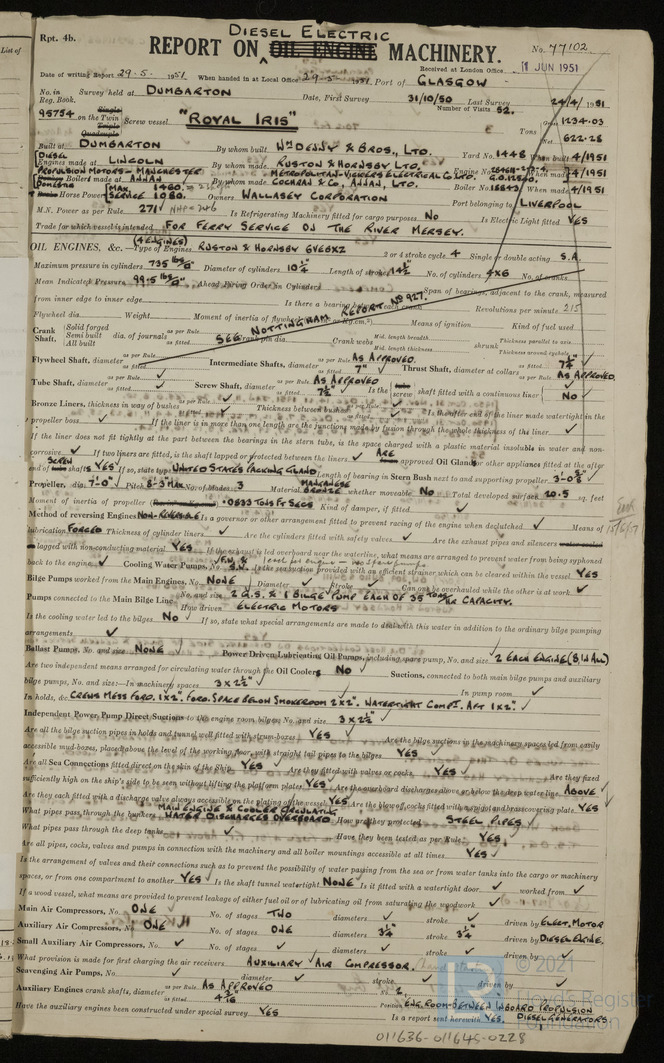 Rpt. 4b.
DIESEL ELECTRIC
REPORT ON OIL ENGINE MACHINERY.
No. 77102
Received at London Office 1 JUN 1951
Date of writing Report 29.5.1951 When handed in at Local Office 29.5.1951 Port of GLASGOW
No. in Reg. Book. Survey held at DUMBARTON Date, First Survey 31/10/50 Last Survey 24/4/1951
Number of Visits 52.
95754 on the Single Twin Triple Quadruple Screw vessel "ROYAL IRIS" Tons Gross 1234.03 Net 622.28
Built at DUMBARTON By whom built Wm DENNY & BROS., LTD. Yard No. 1448 When built 4/1951
DIESEL Engines made at LINCOLN By whom made RUSTON & HORNSBY LTD. Engine No.
PROPULSION MOTORS - MANCHESTER METROPOLITAN-VICKERS ELECTRICAL CO. LTD. 4/1951
Boilers made at ANNAN By whom made COCHRAN & CO, ANNAN, LTD. Boiler No. 16843 When made 4/1951
Horse Power MAX. 1460. SERVICE 1080. Owners WALLASEY CORPORATION Port belonging to LIVERPOOL
M.N. Power as per Rule 271 Is Refrigerating Machinery fitted for cargo purposes No Is Electric Light fitted YES
Trade for which vessel is intended FOR FERRY SERVICE ON THE RIVER MERSEY.
OIL ENGINES, &c. (4 ENGINES) Type of Engines RUSTON & HORNSBY 6VEBXZ 2 or 4 stroke cycle 4 Single or double acting S.A.
Maximum pressure in cylinders 735 lbs/□" Diameter of cylinders 10¼" Length of stroke 14½" No. of cylinders 4x6 No. of cranks
Mean Indicated Pressure 99.5 lbs/□" Ahead Firing Order in Cylinders Span of bearings, adjacent to the crank, measured
from inner edge to inner edge Is there a bearing between each crank Revolutions per minute 215
Flywheel dia. Weight Moment of inertia of flywheel Means of ignition Kind of fuel used
SEE NOTTINGHAM REPORT No 927.
Crank Shaft, Solid forged Semi built All built dia. of journals as per Rule as fitted Crank pin dia. Crank webs Mid. length breadth Mid. length thickness shrunk Thickness parallel to axis Thickness around eyehole
Flywheel Shaft, diameter as per Rule as fitted Intermediate Shafts, diameter as per Rule AS APPROVED as fitted 7" Thrust Shaft, diameter as per Rule AS APPROVED as fitted 7¼"
Tube Shaft, diameter as per Rule as fitted Screw Shaft, diameter as per Rule AS APPROVED as fitted 7½" Is the tube screw shaft fitted with a continuous liner No
Bronze Liners, thickness in way of bushes as per Rule as fitted Thickness between bushes as per Rule as fitted Is the after end of the liner made watertight in the
propeller boss If the liner is in more than one length are the junctions made by fusion through the whole thickness of the liner
If the liner does not fit tightly at the part between the bearings in the stern tube, is the space charged with a plastic material insoluble in water and non-
corrosive If two liners are fitted, is the shaft lapped or protected between the liners ARE approved Oil Glands or other appliances fitted at the after
end of SCREW shafts YES If so, state type UNITED STATES PACKING GLAND Length of bearing in Stern Bush next to and supporting propeller 3-0⅜"
Propeller, dia. 7'-0" Pitch 8-3 MAX No. of blades 3 Material MANGANESE BRONZE whether moveable No Total developed surface 20.5 sq. feet
Moment of inertia of propeller .0833 TONS FT SECS Kind of damper, if fitted
Method of reversing Engines NON-REVERSIBLE Is a governor or other arrangement fitted to prevent racing of the engine when declutched Means of
lubrication FORCED Thickness of cylinder liners Are the cylinders fitted with safety valves Are the exhaust pipes and silencers water cooled
or lagged with non-conducting material YES If the exhaust is led overboard near the waterline, what means are arranged to prevent water from being syphoned
back to the engine Cooling Water Pumps, No. Is the sea suction provided with an efficient strainer which can be cleared within the vessel YES
Bilge Pumps worked from the Main Engines, No. NONE Diameter Stroke Can one be overhauled while the other is at work
Pumps connected to the Main Bilge Line No. and size 2 G.S. & 1 BILGE PUMP EACH OF 35 TONS/HR CAPACITY. How driven ELECTRIC MOTORS
Is the cooling water led to the bilges No If so, state what special arrangements are made to deal with this water in addition to the ordinary bilge pumping
arrangements
Ballast Pumps, No. and size NONE Power Driven Lubricating Oil Pumps, including spare pump, No. and size 2 EACH ENGINE (8 IN ALL)
Are two independent means arranged for circulating water through the Oil Cooler No Suctions, connected to both main bilge pumps and auxiliary
bilge pumps, No. and size:—In machinery spaces 3 x 2½" In pump room
In holds, &c. CREWS MESS FORD. 1x2". FORD. SPACE BELOW SMOKEROOM 2x2". WATERTIGHT COMPT. AFT 1x2".
Independent Power Pump Direct Suctions to the engine room bilges, No. and size 3 x 2½"
Are all the bilge suction pipes in holds and tunnel well fitted with strum-boxes YES Are the bilge suctions in the machinery spaces led from easily
accessible mud-boxes, placed above the level of the working floor, with straight tail pipes to the bilges YES
Are all Sea Connections fitted direct on the skin of the ship YES Are they fitted with valves or cocks YES Are they fixed
sufficiently high on the ship's side to be seen without lifting the platform plates YES Are the overboard discharges above or below the deep water line ABOVE
Are they each fitted with a discharge valve always accessible on the plating of the vessel YES Are the blow off cocks fitted with a spigot and brass covering plate YES
What pipes pass through the bunkers MAIN ENGINE & COOLER CIRCULATING WATER DISCHARGES OVERBOARD How are they protected STEEL PIPES
What pipes pass through the deep tanks Have they been tested as per Rule YES
Are all pipes, cocks, valves and pumps in connection with the machinery and all boiler mountings accessible at all times YES
Is the arrangement of valves and their connections such as to prevent the possibility of water passing from the sea or from water tanks into the cargo or machinery
spaces, or from one compartment to another YES Is the shaft tunnel watertight NONE Is it fitted with a watertight door worked from
If a wood vessel, what means are provided to prevent leakages of either fuel oil or of lubricating oil from saturating the woodwork
Main Air Compressors, No. ONE No. of stages TWO diameters stroke driven by ELECT. MOTOR
Auxiliary Air Compressors, No. ONE No. of stages ONE diameters 3¼" stroke 3¼" driven by DIESEL ENGINE.
Small Auxiliary Air Compressors, No. No. of stages diameters stroke driven by
What provision is made for first charging the air receivers AUXILIARY AIR COMPRESSOR.
Scavenging Air Pumps, No. diameter stroke driven by
Auxiliary Engines crank shafts, diameter as per Rule AS APPROVED as fitted No. 2 Position ENG. ROOM BETWEEN INBOARD PROPULSION DIESEL GENERATORS
Have the auxiliary engines been constructed under special survey YES Is a report sent herewith YES.
011636-011645-0228
© 2021
Lloyd's Register
Foundation